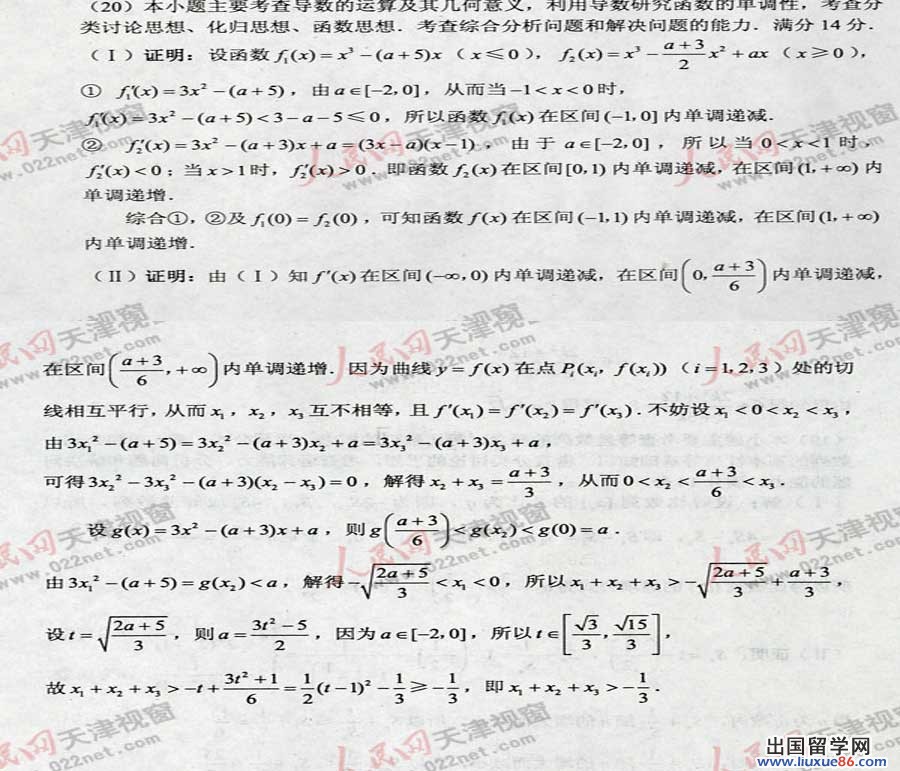 (20)本小题主要考查导数的运算及其几何意义，利用导数研究函数的单调性，考查分
类讨论思想、化归思想、函数思想．考查综合分析问题和解决问题的能力．满分 14 分．
(Ⅰ)证明：设函数 f₁(x)=x³-(a+5)x（x≤0），f₂(x)=x³-\frac{a+3}{2}x²+ax（x≥0），
① f₁′(x)=3x²-(a+5)，由 a∈[-2,0]，从而当 -1<x<0 时，
f₁′(x)=3x²-(a+5)<3-a-5≤0，所以函数 f₁(x) 在区间 (-1,0] 内单调递减．
② f₂′(x)=3x²-(a+3)x+a=(3x-a)(x-1)，由于 a∈[-2,0]，所以当 0<x<1 时，
f₂′(x)<0；当 x>1 时，f₂′(x)>0．即函数 f₂(x) 在区间[0,1) 内单调递减，在区间 (1,+∞) 内
单调递增．
综合①，②及 f₁(0)=f₂(0)，可知函数 f(x) 在区间 (-1,1) 内单调递减，在区间 (1,+∞)
内单调递增．
(Ⅱ)证明：由（Ⅰ）知 f′(x) 在区间 (-∞,0) 内单调递减，在区间 (0,\frac{a+3}{6}) 内单调递减，
在区间 (\frac{a+3}{6},+∞) 内单调递增．因为曲线 y=f(x) 在点 Pᵢ(xᵢ, f(xᵢ))（i=1,2,3）处的切
线相互平行，从而 x₁，x₂，x₃ 互不相等，且 f′(x₁)=f′(x₂)=f′(x₃)．不妨设 x₁<0<x₂<x₃，
由 3x₁²-(a+5)=3x₂²-(a+3)x₂+a=3x₃²-(a+3)x₃+a，
可得 3x₂²-3x₃²-(a+3)(x₂-x₃)=0，解得 x₂+x₃=\frac{a+3}{3}，从而 0<x₂<\frac{a+3}{6}<x₃．
设 g(x)=3x²-(a+3)x+a，则 g(\frac{a+3}{6})<g(x₂)<g(0)=a．
由 3x₁²-(a+5)=g(x₂)<a，解得 -\sqrt{\frac{2a+5}{3}}<x₁<0，所以 x₁+x₂+x₃>-\sqrt{\frac{2a+5}{3}}+\frac{a+3}{3}，
设 t=\sqrt{\frac{2a+5}{3}}，则 a=\frac{3t²-5}{2}，因为 a∈[-2,0]，所以 t∈[\frac{\sqrt{3}}{3},\frac{\sqrt{15}}{3}]，
故 x₁+x₂+x₃>-t+\frac{3t²+1}{6}=\frac{1}{2}(t-1)²-\frac{1}{3}≥-\frac{1}{3}，即 x₁+x₂+x₃>-\frac{1}{3}．
人民网天津视窗
www.022net.com
出国留学网
www.liuxue86.com